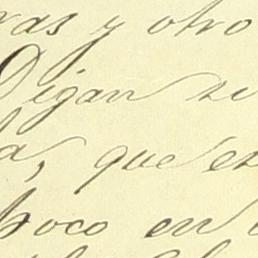 ras y otro
Digan si
a, que es
poco en